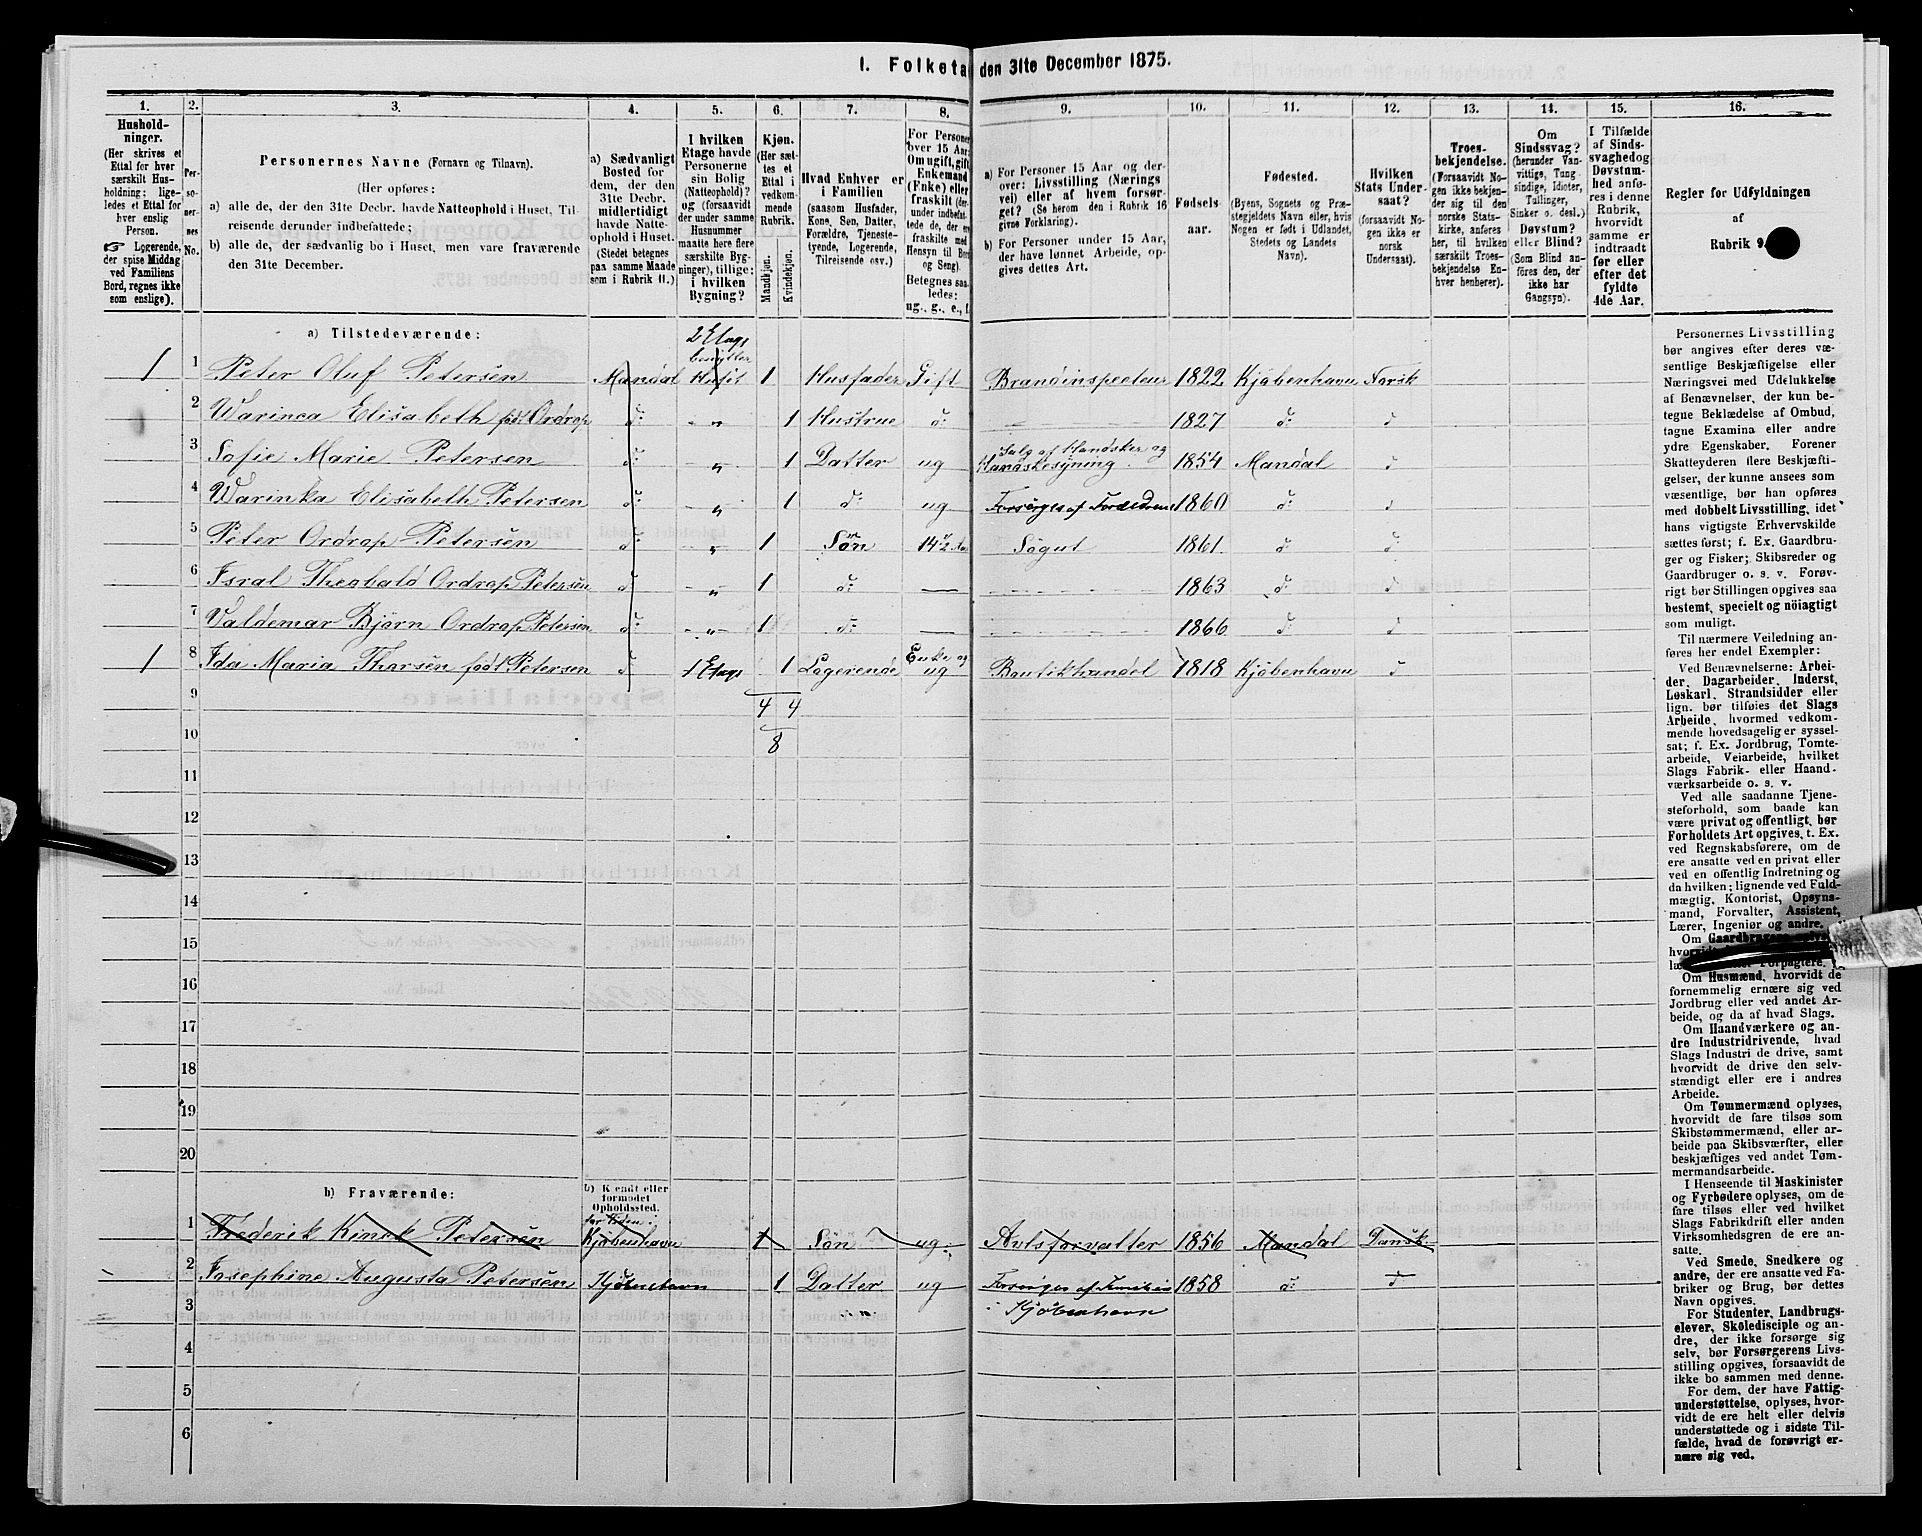 1. Folketal den 31te December 1875.
1. 2. 3. 4. 5. 6. 7. 8. 9. 10. 11. 12. 13. 14. 15. 16.
Hushold-
ninger.
(Her skrives et
Ettal for hver
særskilt Hus-
holdning; lige-
ledes et Ettal for
hver enslig
Person.
Logerende,
der spise Middag
ved Familiens
Bord, regnes ikke
som enslige).
Per-
so-
ner-
nes
No.
Personernes Navne (Fornavn og Tilnavn).
(Her opføres:
a) alle de, der den 31te Decbr. havde Natteophold i Huset, Til-
reisende derunder indbefattede;
b) alle de, der sædvanlig bo i Huset, men vare fraværende
den 31te December.
a) Sædvanligt
Bosted for
dem, der den
31te Decbr.
midlertidigt
havde Natte-
ophold i Huset.
(Stedet betegnes
paa samme Maade
som i Rubrik 11.)
I hvilken
Etage havde
Personerne
sin Bolig
(Natteophold)?
og (forsaavidt
der under samme
Husnummer
maatte høre flere
særskilte Byg-
ninger), tillige:
i hvilken
Bygning?
Kjøn.
(Her sæt-
tes et
Ettal i
vedkom-
mende
Rubrik.
Mandkjøn.
Kvindekjøn.
Hvad Enhver er
i Familien
(saasom Husfader,
Kone, Søn, Datter,
Forældre, Tjeneste-
tyende, Logerende,
Tilreisende osv.)
For Personer
over 15 Aar:
Om ugift, gift,
Enkemand
(Enke) eller
fraskilt (der-
under indbefat-
tede de, der ere
fraskilte med
Hensyn til Bord
og Seng).
Betegnes saa-
ledes:
ug., g., e., f.
a) For Personer 15 Aar og der-
over: Livsstilling (Nærings
vei) eller af hvem forsør-
get? (Se herom den i Rubrik 16
givne Forklaring).
b) For Personer under 15 Aar,
der have lønnet Arbeide, op-
gives dettes Art.
Fødsels-
aar.
Fødested.
(Byens, Sognets og Præ-
stegjeldets Navn eller, hvis
Nogen er født i Udlandet,
Stedets og Landets
Navn).
Hvilken
Stats Under-
saat?
(forsaavidt No-
gen ikke er
norsk
Undersaat).
Troes-
bekjendelse.
(Forsaavidt No-
gen ikke bekjen-
der sig til den
norske Stats-
kirke, anføres
her, til hvilken
særskilt Troes-
bekjendelse En-
hver henhører).
Om
Sindssvag?
(herunder Van-
vittige, Tung
sindige, Idioter,
Tullinger,
Sinker o. desl.)
Døvstum?
eller Blind?
(Som Blind an-
føres den, der
ikke har
Gangsyn).
I Tilfælde
af Sinds-
svaghed og
Døvstum-
hed anfø-
res i denne
Rubrik,
hvorvidt
samme er
indtraadt
før eller
efter det
fyldte
4de Aar.
Regler for Udfyldningen
af
Rubrik 9.
a) Tilstedeværende:
2 Etage
benyttes
1 1 Peter Oluf Petersen Mandal Huset 1 Husfader Gift Brandinspecteur 1822 Kjøbenhavn Norsk
2 Warinca Elisabeth født Ordrop d: - " - 1 Hustrue d: 1827 d: d
3 Sofie Marie Petersen d: " 1 Datter ug Salg af Handsker og Handskesyning. 1854 Mandal d
4 Warinka Elisabeth Petersen d: - " 1 d: ug Forsørges af Forældrene 1860 d: d
5 Peter Ordrop Petersen d: - " 1 Søn 14 1/2 Aar Søgut 1861. d d
6 Isral Theobald Ordrop Petersen d - " 1 d: 1863 d: d
7 Valdemar Bjørn Ordrop Petersen d: - " - 1 d: 1866 d d
1 8 Ida Maria Tharsen født Petersen d 1 Etage 1 Logerende Enke og ug Boutikhandel 1818 Kjøbenhavn d
9
4 4
10
8
11
12
13
14
15
16
17
18
19
20
b) Fraværende:
b) Kjendt eller
formodet
Opholdssted.
for tiden
1 Frederik Petersen Kjøbenhavn 1 Søn ug: Avlsforvalter 1856 Mandal Dansk.
2 Josephine Augusta Petersen Kjøbenhavn 1 Datter ug Forsørges af Familie i Kjøbenhavn 1858 d: d
3
4
5
6
Personernes Livsstilling
bør angives efter deres væ-
sentlige Beskjæftigelse eller
Næringsvei med Udelukkelse
af Benævnelser, der kun be-
tegne Beklædelse af Ombud,
tagne Examina eller andre
ydre Egenskaber. Forener
Skatteyderen flere Beskjæfti-
gelser, der kunne ansees som
væsentlige, bør han opføres
med dobbelt Livsstilling, idet
hans vigtigste Erhvervskilde
sættes først; f. Ex. Gaardbru-
ger og Fisker; Skibsreder og
Gaardbruger o. s. v. Forøv-
rigt bør Stillingen opgives saa
bestemt, specielt og nöiagtigt
som muligt.
Til nærmere Veiledning an-
føres her endel Exempler:
Ved Benævnelserne: Arbei-
der, Dagarbeider, Inderst,
Løskarl, Strandsidder eller
lign. bør tilføies det Slags
Arbeide, hvormed vedkom-
mende hovedsagelig er syssel-
sat; f. Ex. Jordbrug, Tomte-
arbeide, Veiarbeide, hvilket
Slags Fabrik- eller Haand-
værksarbeide o. s. v.
Ved alle saadanne Tjene-
steforhold, som baade kan
være privat og offentligt, bør
Forholdets Art opgives, t. Ex.
ved Regnskabsførere, om de
ere ansatte ved en privat eller
ved en offentlig Indretning og
da hvilken; lignende ved Fuld-
mægtig, Kontorist, Opsyns-
mand, Forvalter, Assistent,
Lærer, Ingeniør og andre.
Om Gaardbrugere oplyses
hvorvidt
Forpagtere.
Om Husmænd, hvorvidt de
fornemmelig ernære sig ved
Jordbrug eller ved andet Ar-
beide, og da af hvad Slags.
Om Haandværkere og an-
dre Industridrivende, hvad
Slags Industri de drive, samt
hvorvidt de drive den selv-
stændigt eller ere i andres
Arbeide.
Om Tømmermænd oplyses,
hvorvidt de fare tilsøs som
Skibstømmermænd, eller ar-
beide paa Skibsværfter, eller
beskjæftiges ved andet Tøm-
mermandsarbeide.
I Henseende til Maskinister
og Fyrbødere oplyses, om de
fare tilsøs eller ved hvilket
Slags Fabrikdrift eller anden
Virksomhedsgren de ere an-
satte.
Ved Smede, Snedkere og
andre, der ere ansatte ved Fa-
briker og Brug, bør dettes
Navn opgives.
For Studenter, Landbrugs-
elever, Skoledisciple og an-
dre, der ikke forsørge sig
selv, bør Forsørgerens Livs-
stilling opgives, forsaavidt de
ikke bo sammen med denne.
For dem, der have Fattig-
understøttelse, oplyses, hvor-
vidt de ere helt eller delvis
understøttede og i sidste Til-
fælde, hvad de forøvrigt er-
nære sig ved.